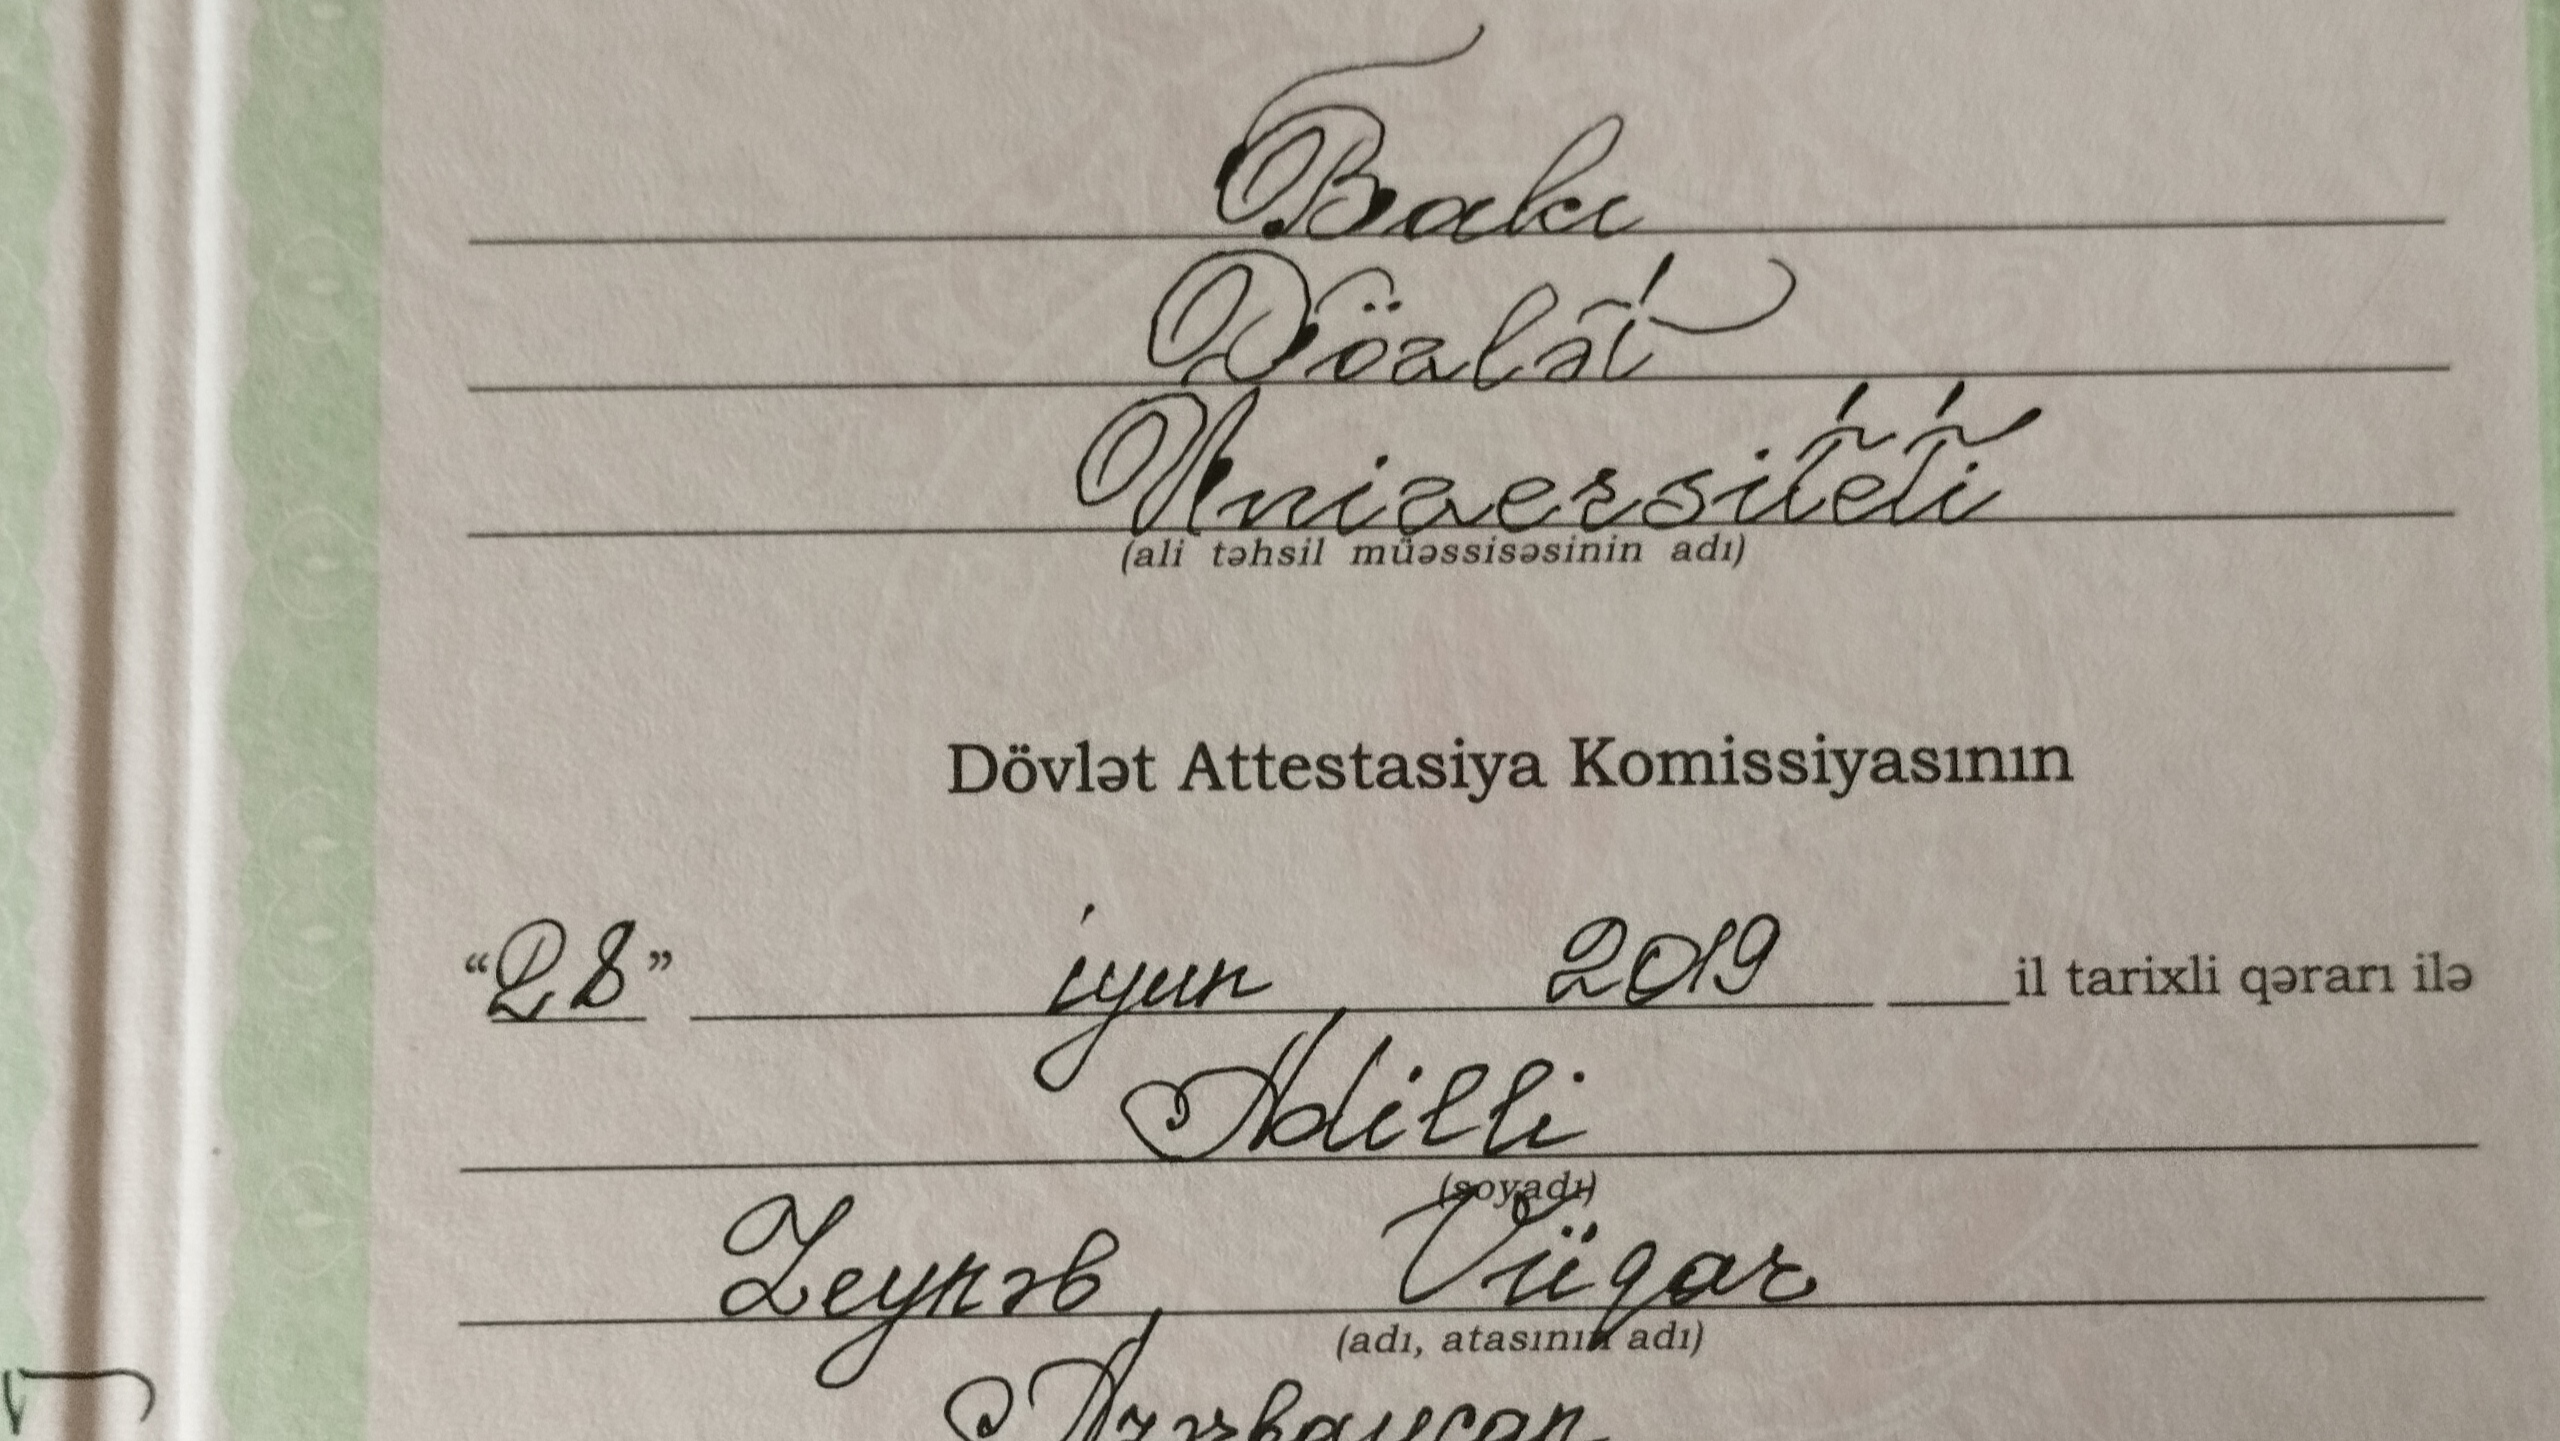 Bakı
Dövlət
Universiteti
(ali təhsil müəssisəsinin adı)
Dövlət Attestasiya Komissiyasının
“28” iyun 2019 il tarixli qərarı ilə
Adilli
(soyadı)
Zeynəb Vüqar
(adı, atasının adı)
Azərbaycan